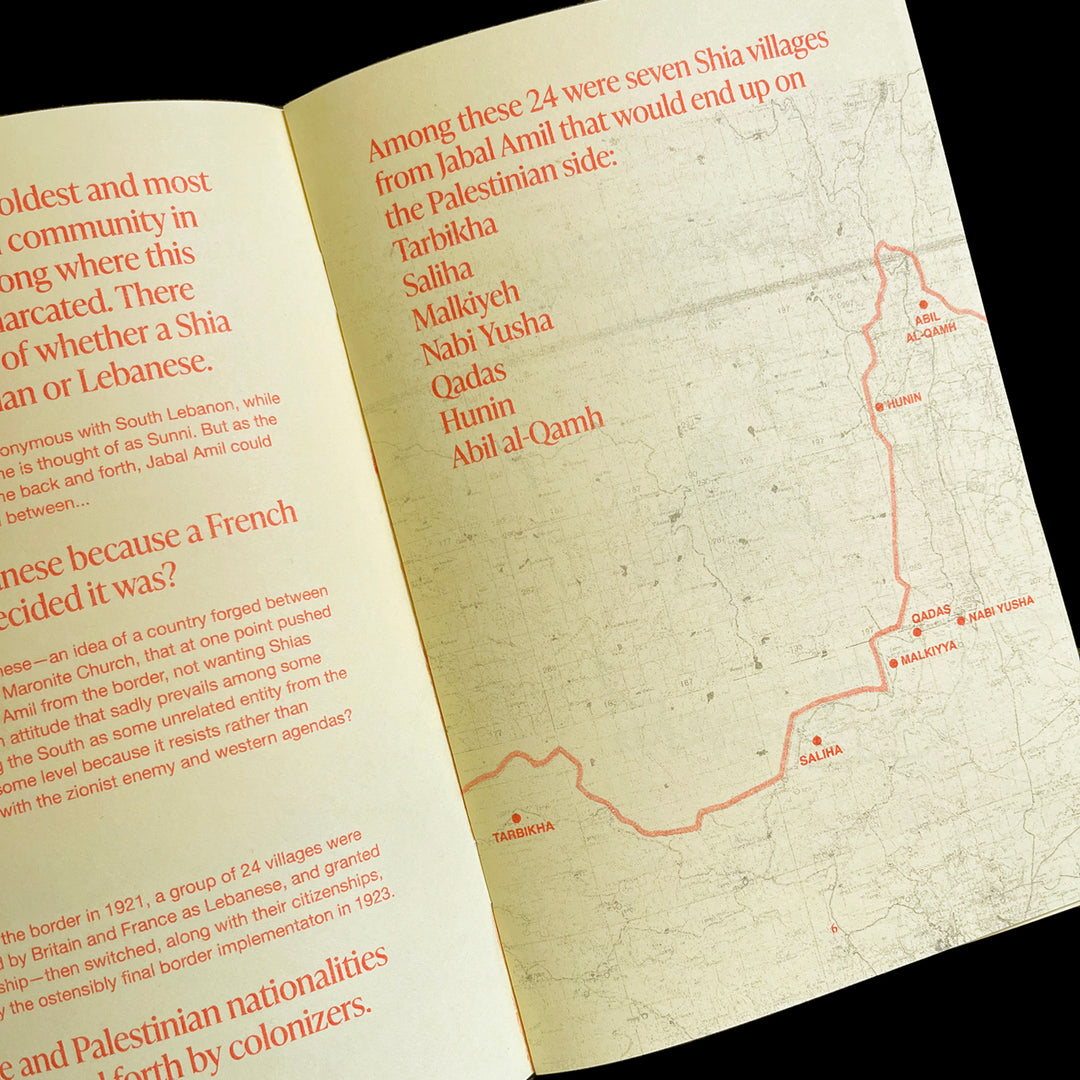 oldest and most
community in
ong where this
arcated. There
of whether a Shia
an or Lebanese.
onymous with South Lebanon, while
ne is thought of as Sunni. But as the
ne back and forth, Jabal Amil could
between...
nese because a French
ecided it was?
nese—an idea of a country forged between
Maronite Church, that at one point pushed
Amil from the border, not wanting Shias
attitude that sadly prevails among some
the South as some unrelated entity from the
some level because it resists rather than
with the zionist enemy and western agendas?
the border in 1921, a group of 24 villages were
d by Britain and France as Lebanese, and granted
ship—then switched, along with their citizenships,
y the ostensibly final border implementaton in 1923.
e and Palestinian nationalities
forth by colonizers.
Among these 24 were seven Shia villages
from Jabal Amil that would end up on
the Palestinian side:
Tarbikha
Saliha
Malkiyeh
Nabi Yusha
Qadas
Hunin
Abil al-Qamh
ABIL
AL-QAMH
HUNIN
QADAS
NABI YUSHA
MALKIYYA
SALIHA
TARBIKHA
6